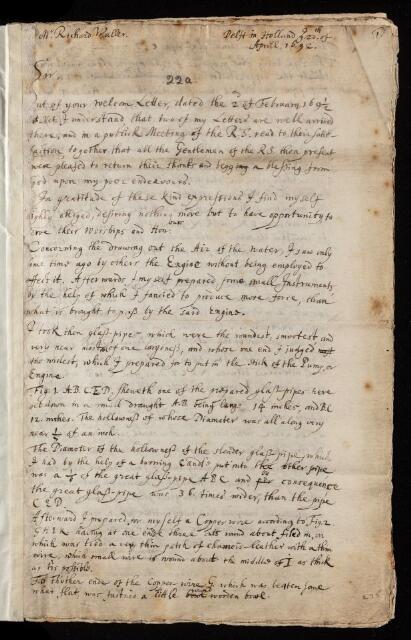 Mr Richard Waller.
Delft in Holland 22th of
Aprill. 1692.
(1)
Sir.
22a
Out of your welcom Letter, dated the 2d of February 169½
I understand, that two of my Letters are well arrived
there, and in a publick Meeting of the R.S. read to their satis-
faction, together that all the Gentlemen of the R.S. then present
were pleased to return their thanks and begging a blessing from
God upon my poor endeavours.
In gratitude of these kind expressions I find my self
highly obliged, desiring nothing more but to have opportunity to
serve their Worships and Honrs.
Concerning the drawing out the Air of the water, I saw only
one time ago by others the Engine without being employed to
effect it. Afterwards I my self prepared some small Instruments
by the help of which I fancied to procure more force, than
what is brought to pass by the said Engine.
I took then glass-pipes which were the roundest, smootest and
very near of one largeness, and whose one end I judged
the widest, which I prepared to put in the stick of the Pump or
Engine.
Fig. 1. A.B.C.E.D. sheweth one of the prepared glass-pipes here
set down in a much draught AB being lang 14 inches, and BC
12 inches. The hollowness of whose Diameter was all along very
near of an inch.
The Diameter of the hollowness of the slender glass-pipe, which
I had by the help of a burning Candle put into the other pipe
was a of the great glass-pipe ABC and consequence
the great glass-pipe was 36 times wider, than the pipe
CED.
Afterward I prepared for my self a Copper wire according to Fig. 2
GHIK having at one ende three cuts round about filed in, on
which was tied a very thin patch of chamois-leather with a thin
wire, which small wire is wound about the middle of I as thick
as is possible.
To th'other ende of the Copper wire G which was beaten some
what flat, was fastned a little wooden bowl.